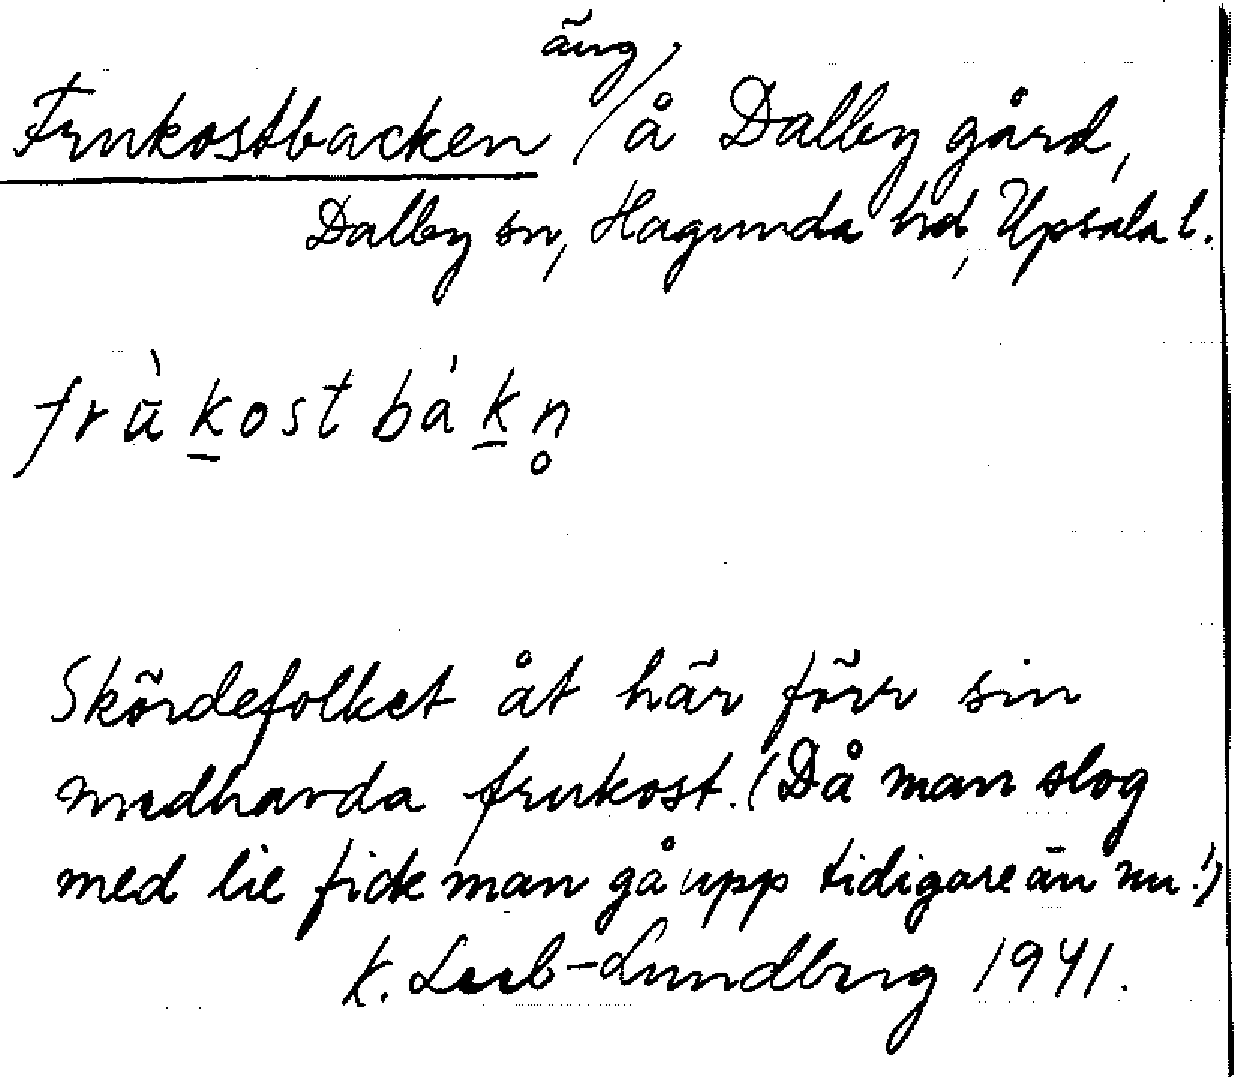 Frukostbacken / äng / å Dalby gård,
Dalby sn, Hagunda hd, Upsala l.
frù̄k̲ostbák̲n̥
Skördefolket åt här förr sin
medhavda frukost. (Då man slog
med lie fick man gå upp tidigare än nu!)
K. Leeb-Lundberg 1941.